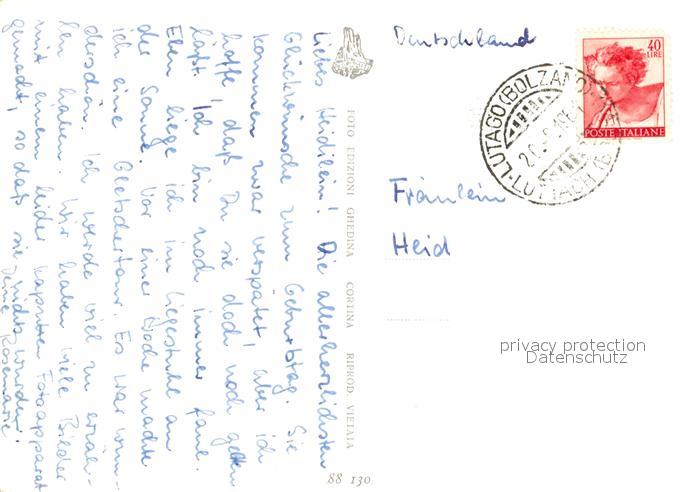 Liebes Heidilein! Die allerherzlichsten
Glückwünsche zum Geburtstag. Sie
kommen zwar verspätet, aber ich
hoffe daß Du sie doch noch gelten
läßt. Ich bin noch immer faul.
Eben liege ich im Liegestuhl an
der Sonne. Vor einer Woche machte
ich eine Gletschertour. Es war wun-
derschön. Ich werde viel zu erzäh-
len haben. Wir haben viele Bilder
mit einem leider kaputten Fotoapparat
gemacht, so daß sie nichts wurden!
Deine Rosemarie
FOTO EDIZIONI GHEDINA CORTINA RIPROD. VIETATA
88 130
Deutschland
40
LIRE
POSTE ITALIANE
LUTAGO (BOLZANO)
LUTTACH
Fräulein
Heid
privacy protection
Datenschutz